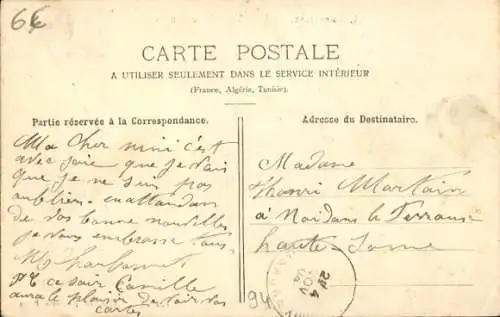 6€
CARTE POSTALE
A UTILISER SEULEMENT DANS LE SERVICE INTÉRIEUR
(France, Algérie, Tunisie).
Partie réservée à la Correspondance.
Ma Cher mimi c'est
avec joie que je vais
que je ne suis pas
oublier. en attendan
de vos bonne nouvelles
je vous embrasse tous.
M
PS ce soir Camille
aura le plaisir de voir vos
cartes
Adresse du Destinataire.
Madame
Henri Martain
à Noidans le Ferroux
haute-Sonne
94
24
NOV